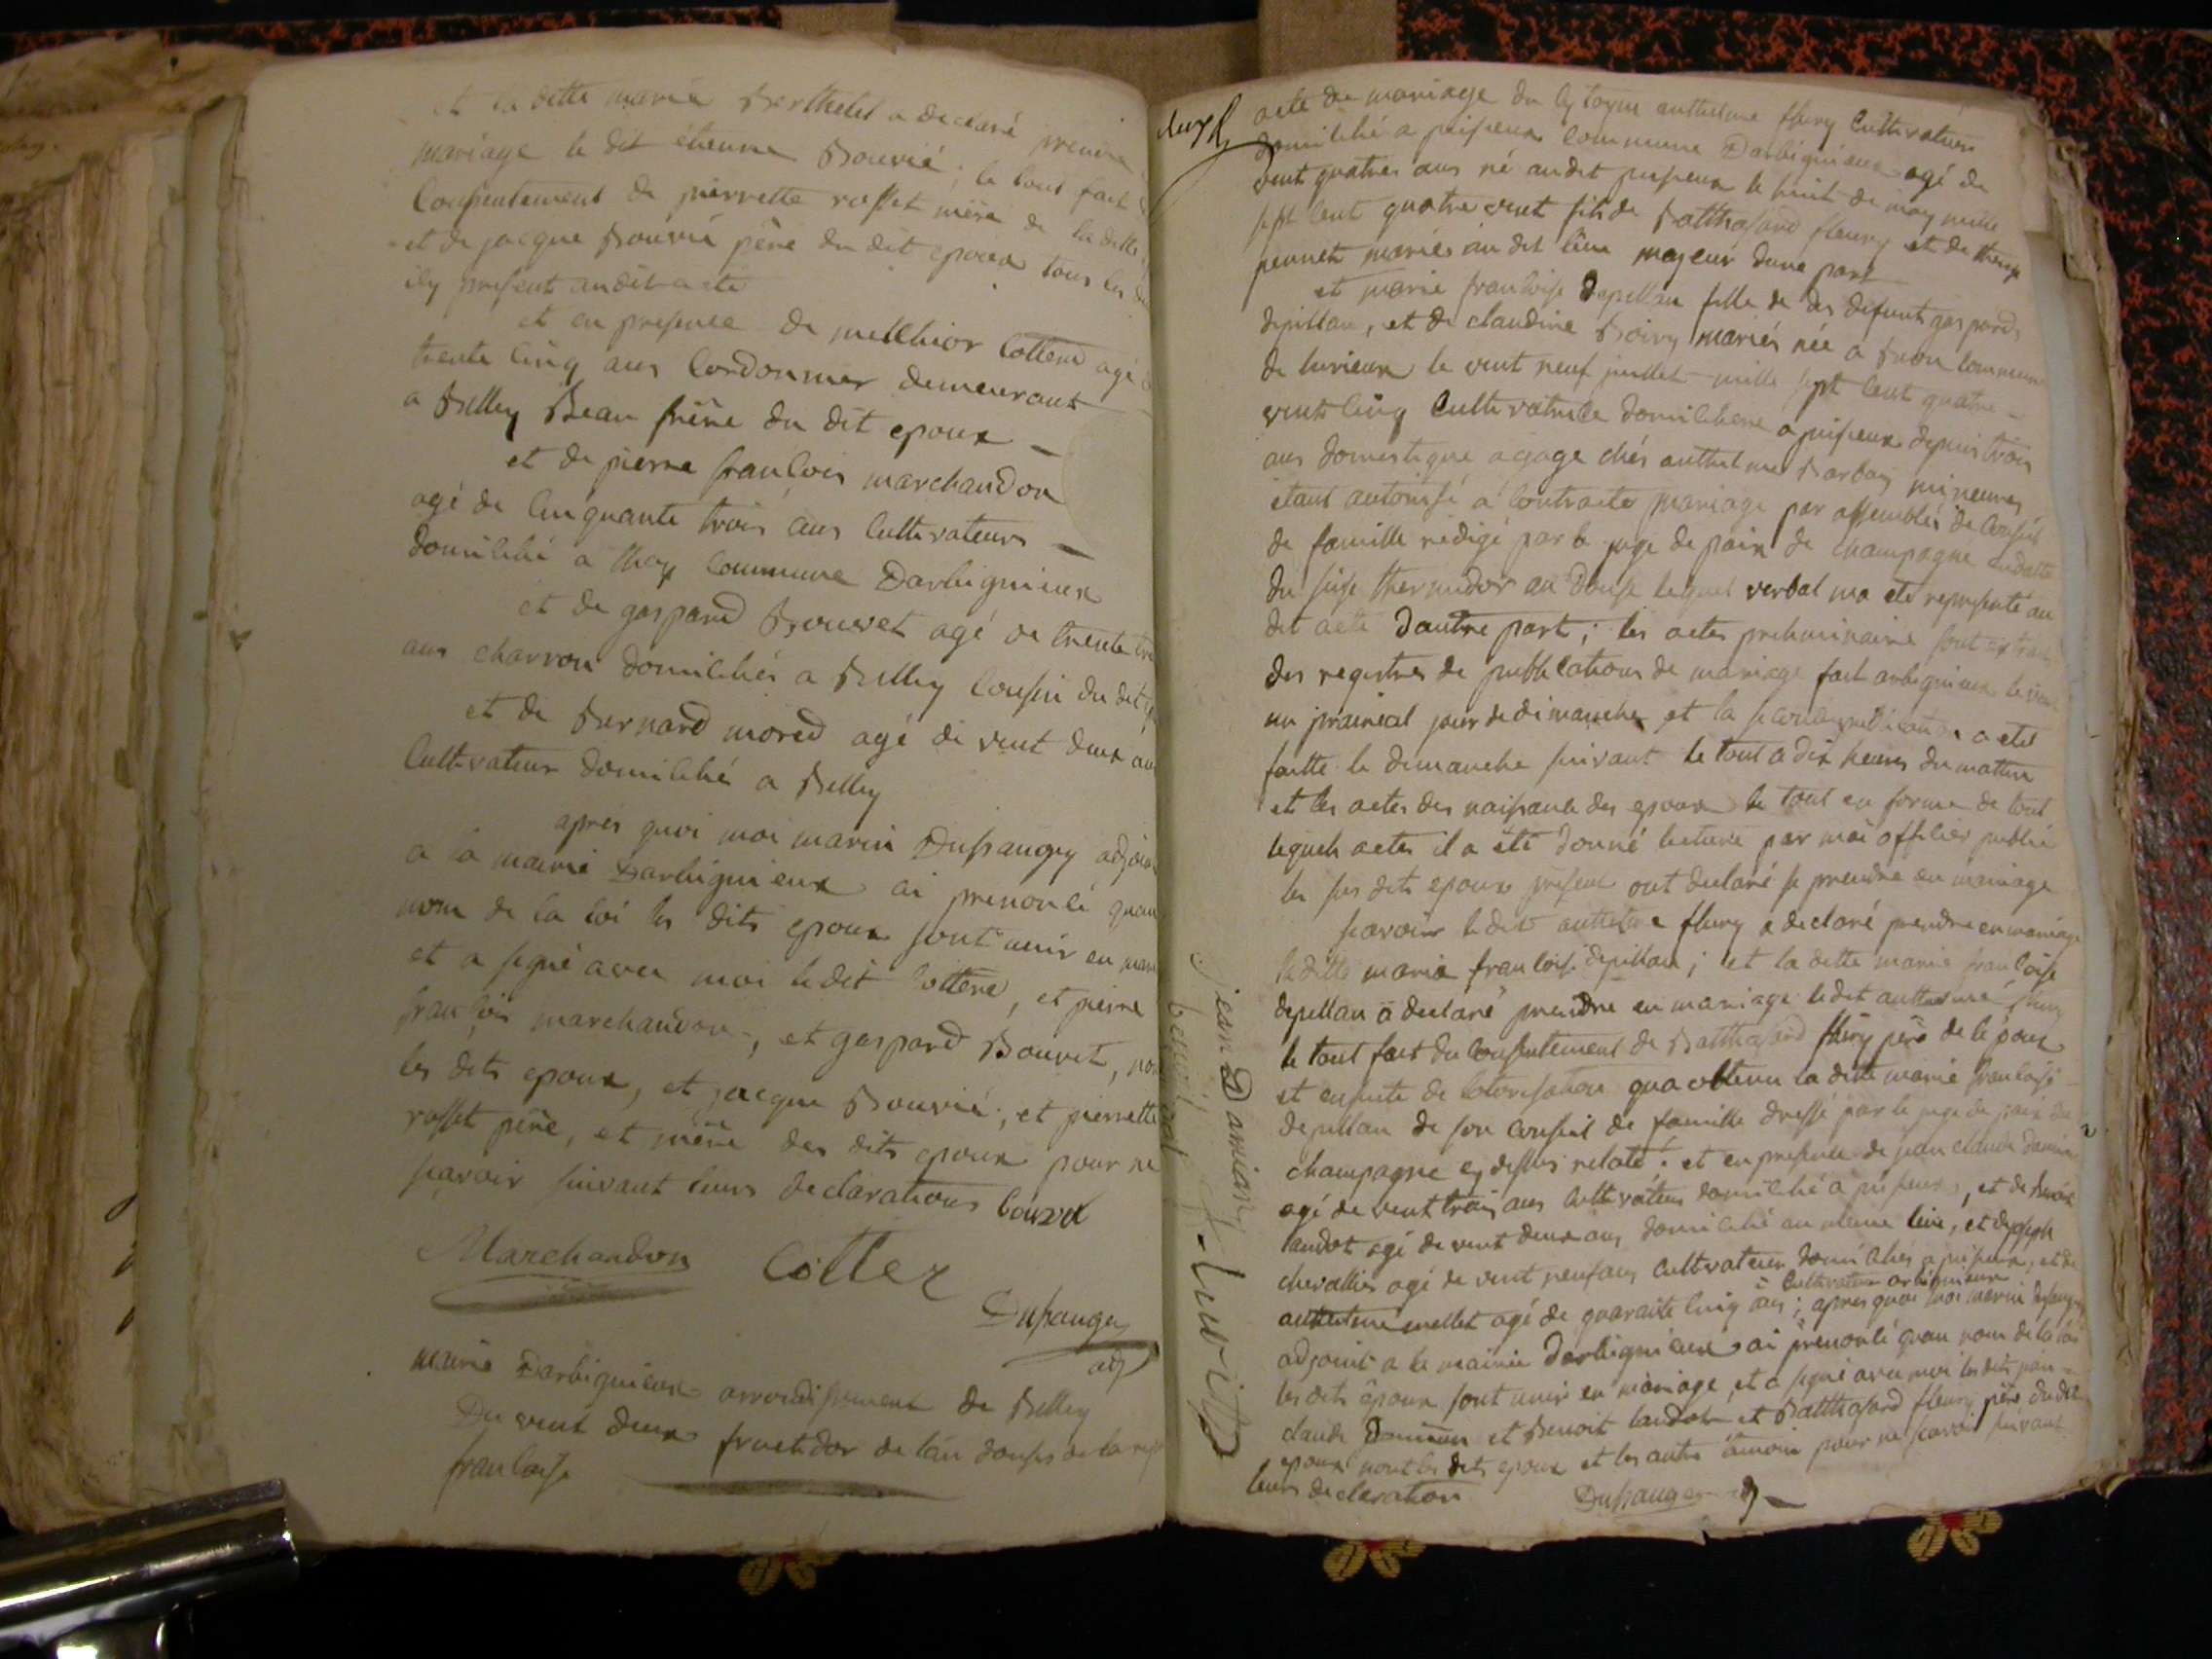 et la ditte marie Berthelet a declaré prendre
mariage le dit étienne Bouvié; le tout fait
Consentement de pierrette rosset mère de la ditte
et de jacque Bouvié père du dit epoux tous les
icy present audit acte
et en presence de melchior Cottere agé
trente cinq ans Cordonnier demeurant
a Belley Beau frère du dit epoux
et de pierre françois marchandon
agé de cinquante trois ans Cultivateurs
domicilié a thoy Commune Darbignieux
et de gaspard Bouvet agé de trente
ans charron domiciliés a Belley Cousin du dit
et de Bernard mored agé de vent deux
Cultivateur domicilié a Belley
apres quoi moi marin Dusaugey adjoint
a la mairie Darbignieux ai prenoncé quau
nom de la loi les dits epoux sont unis en
et a signé avec moi ledit Cottere, et pierre
françois marchandon, et gaspard Bouvet,
les dits epoux, et jacque Bouvié, et pierrette
rosset père, et mère des dits epoux pour ne
scavoir suivant leurs declarations
Marchandon Cotter
Dusaugey
adj
mairie Darbignieux arrondissement de Belley
Du vent deux fructidor de lan douses de la
francoise
acte de mariage du cytoyen anthelme fleury Cultivateur
domicilié a peisieux Commune Darbignieux agé de
vent quatres ans né audit peisieux le huit de may mille
sept cent quatre vent fils de Balthasard fleury et de
pennet mariés au dit lieu majeur dune part
et marie francoise depillau fille de des defunt gaspard
depillau, et de claudine Boivy mariés née a Commune
de le vent neuf juillet mille sept cent quatre
vent cinq Cultivatrice domiciliere a peisieux depuis trois
ans domestique agage chés anthelme Barbay mineures
étant autorisé a Contracter mariage par assemblés de Conseil
de famille redigé par le juge de paix de champagne en datte
du seise thermidor an douse lequel verbal ma eté representé au
dit acte dautre part; les actes preliminaire sont extrait
des registres de publications de mariage fait arbignieux le
un prairial jour de dimanche et la a eté
faitte le dimanche suivant le tout a dix heures du mattin
et les actes des naissance des epoux le tout en forme de tout
lequels actes il a été donné lecture par moi officier public
les sus dits epoux present ont declaré se prendre en mariage
scavoir ledit anthelme fleury a declaré prendre en mariage
laditte marie francoise depillau; et la ditte marie francoise
depillau a declaré prendre en mariage ledit anthelme fleury
le tout fait du Consentement de Balthasard fleury père de le poux
et ensuite de lotorisation qua obtenu la ditte marie francoise
depillau de son Conseil de famille dressé par le juge de paix de
champagne cy dessus relaté: et en presence de jean claude Damian
agé de vent trois ans Cultivateur domicilié a peisieux, et de Benoit
laudot agé de vent deux ans domicilié au meme lieu, et de joseph
chevallier agé de vent neuf ans Cultivateur domiciliés a peisieux, et de
Cultivateur arbignieux
anthelme mellet agé de quarante cinq ans; apres quoi moi marin Dusaugey
adjoint a la mairie Darbignieux ai prenoncé quau nom de la loi
les dits epoux sont unis en mariage, et a signé avec moi les dits jean
claude Damian et Benoit laudot et Balthasard fleury père du dit
epoux nont les dits epoux et les autre témoin pour ne scavoir suivant
leurs declaration
Dusaugey adj
jean Damian